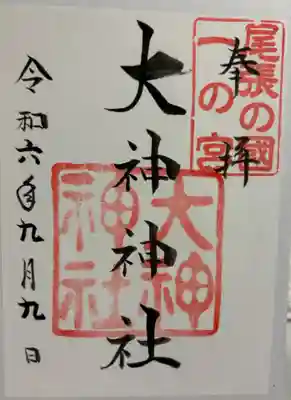 奉拝
尾張の國
一の宮
大神神社
大神
神社
令和六年九月九日